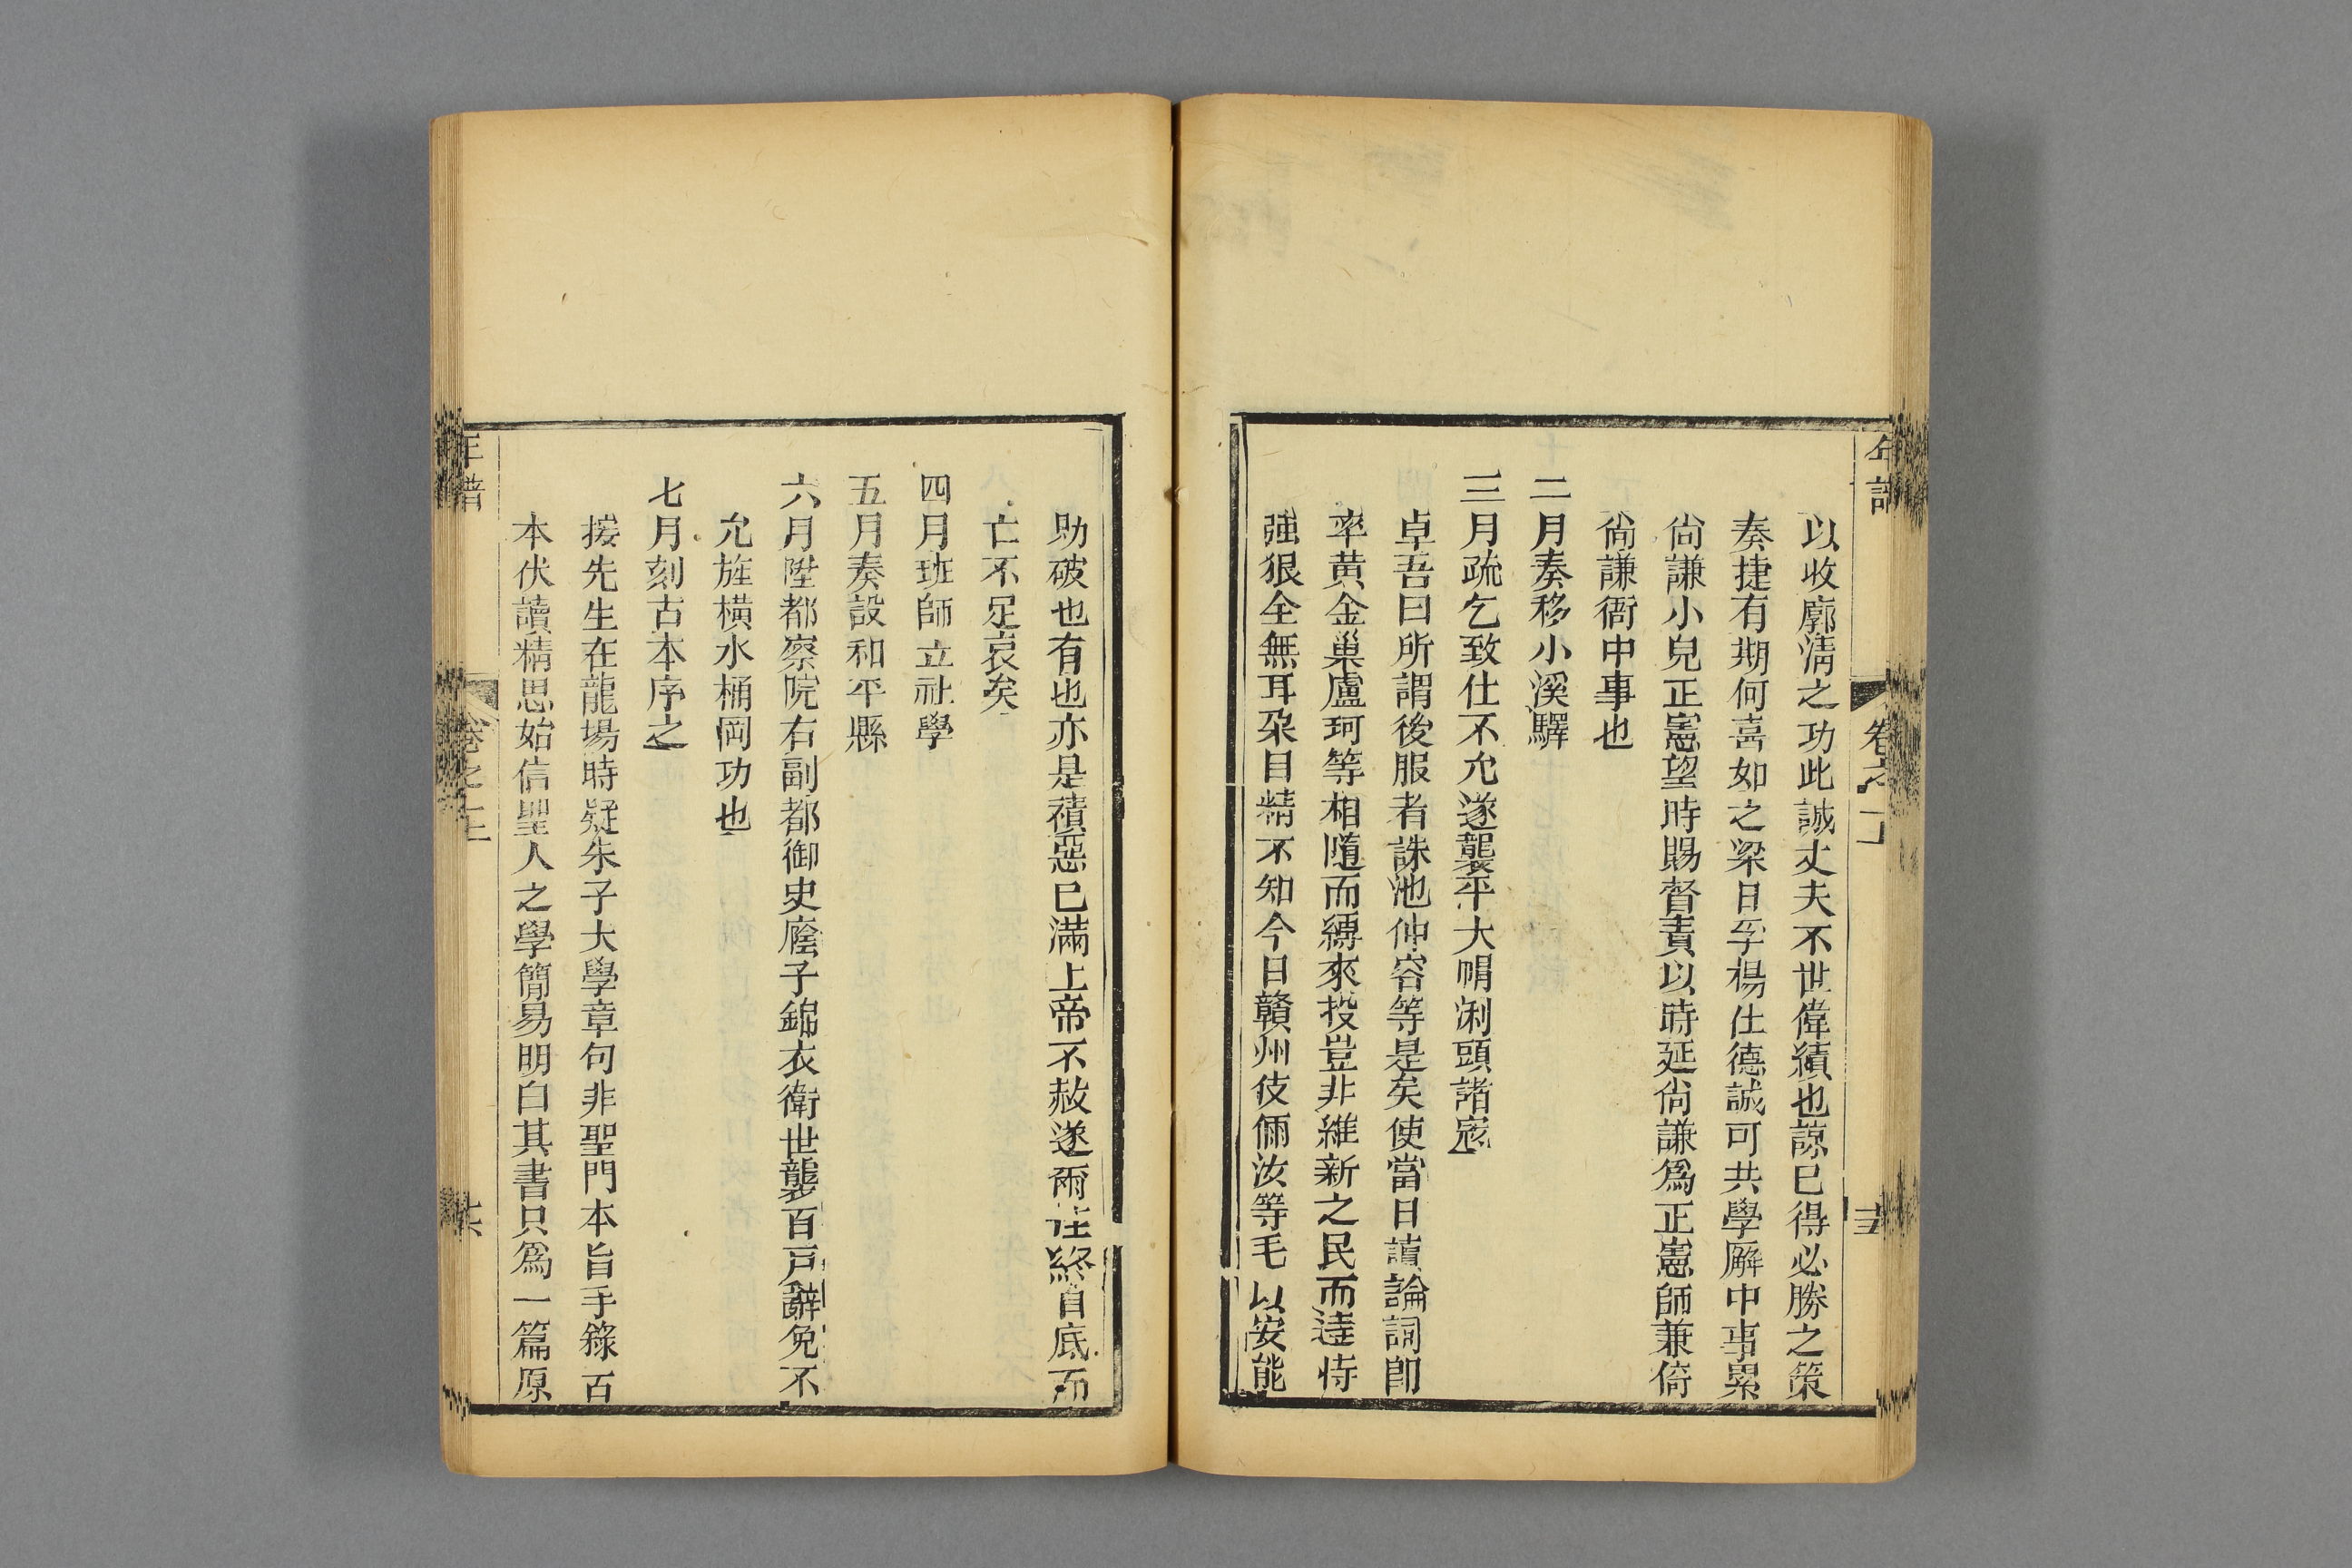 年譜
卷之上
以收廓清之功此誠丈夫不世偉績也諒已得必勝之策
奏捷有期何喜如之梁日孚楊仕德誠可共學廨中事累
尙謙小兒正憲望時賜督責以時延尙謙爲正憲師兼倚
尙謙衙中事也
二月奏移小溪驛
三月疏乞致仕不允遂襲平大㡌浰頭諸寇
卓吾曰所謂後服者誅池仲容等是矣使當日讀論詞卽
率黄金巢盧珂等相隨而縛來投豈非維新之民而違恃
強狠全無耳朶目精不知今日贛州伎倆汝等毛以安能
助破也有也亦是積惡已滿上帝不赦遂爾 終自底而
亡不足哀矣
四月班師立社學
五月奏設和平縣
六月陞都察院右副都御史廕子錦衣衛世襲百戸辭免不
允旌橫水桶岡功也
七月刻古本序之
按先生在龍場時疑朱子大學章句非聖門本旨手錄古
本伏讀精思始信聖人之學簡易明白其書只爲一篇原
年譜
卷之上